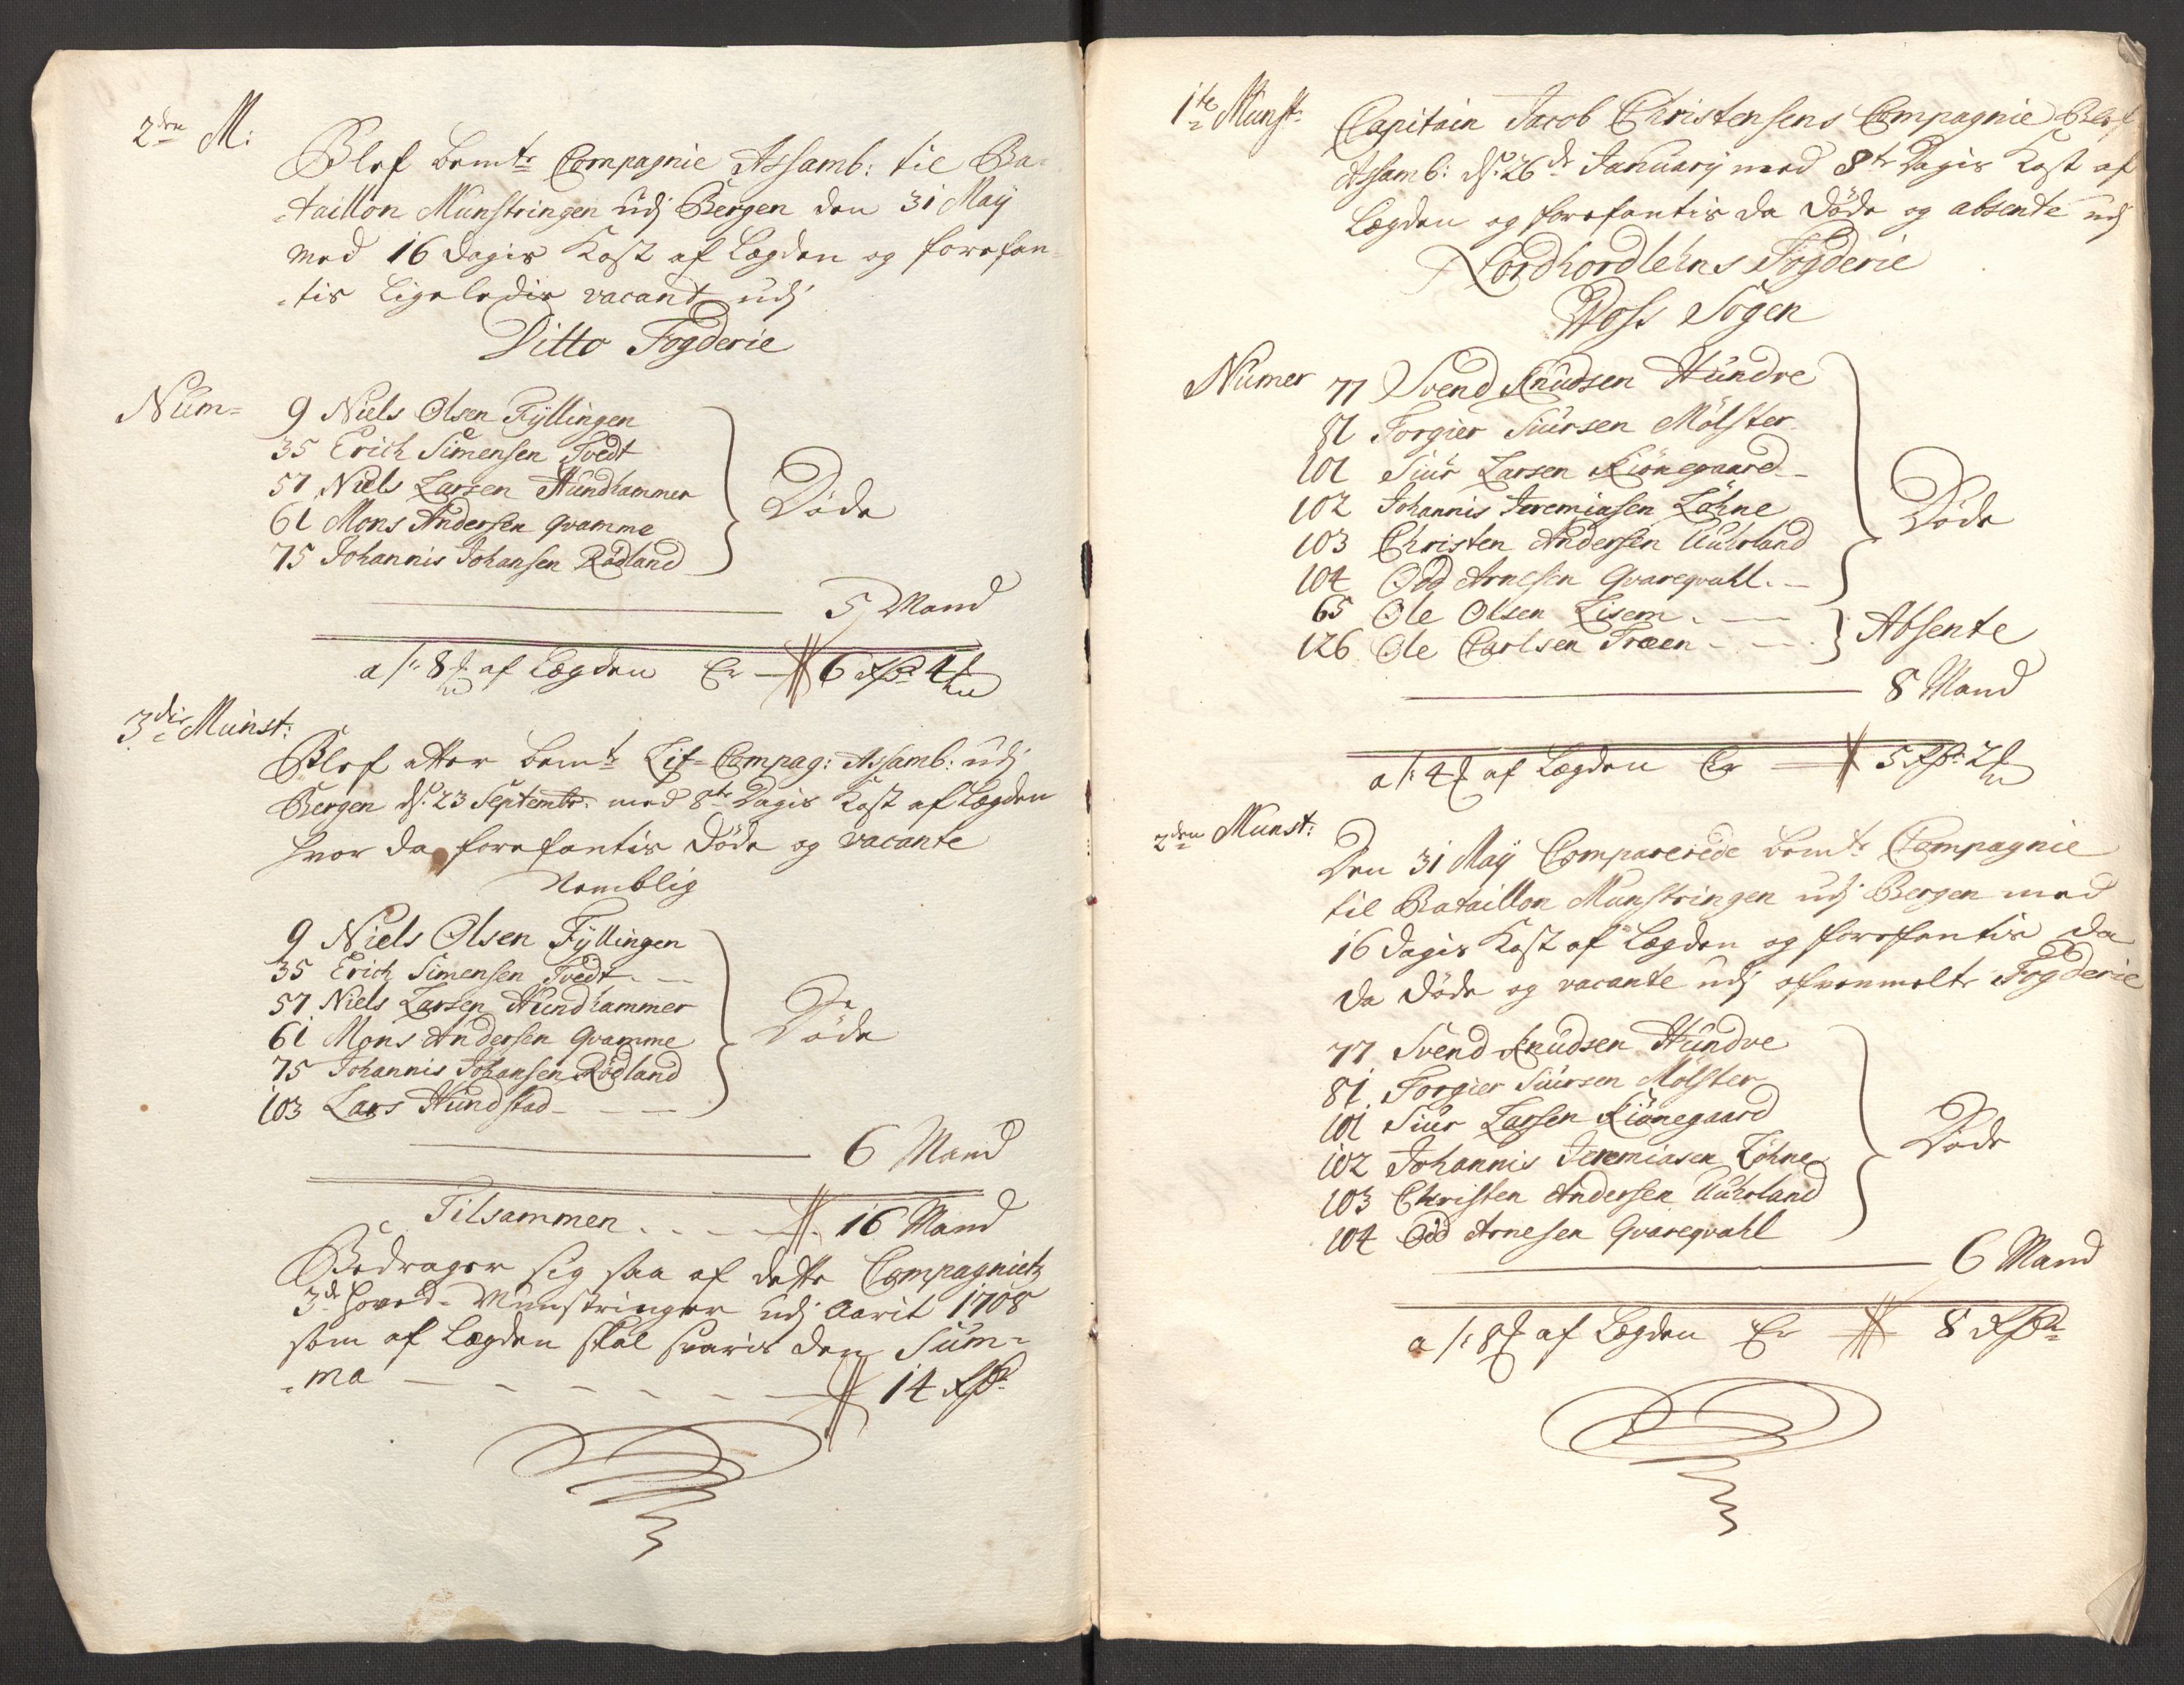 2den M:
Blef bemte Compagnie Assamb: til Ba-
-taillon Munstringen udj Bergen den 31 Maÿ
med 16 dagis Kost af Lægden og forefan-
-tis ligeledis vacant udj
Ditto Fogderie
Num- 9 Niels Olsen Fyllingen
35 Erich Simensen Tvedt
57 Niels Larsen Hundhammer
61 Mons Andersen Qvamme
75 Johannis Johansen Rødland
Døde
5 Mand
a 8 af Lægden Er 6 Rdr 4
3die Munst:
Blef etter bemt Lif-Compag: Assamb: udj
Bergen d. 23 Septembr: med 8te Dagis Kost af Lægden
hvor da forefantis Døde og vacante
Nemblig
9 Niels Olsen Fyllingen
35 Erich Simensen Tvedt - -
57 Niels Larsen Hundhammer
61 Mons Andersen Qvamme
75 Johannis Johansen Rødland
103 Lars Hundstad - - -
Døde
6 Mand
Tilsammen . . - - 16 Mand
Bedrager sig saa af dette Compagnietz
3de hoved-Munstringer udj Aarit 1708
som af Lægden skal svaris den Sum-
-ma - - - - - - 14 Rdr
1te Munst-
Capitain Jacob Christensens Compagnie Blef
Assamb: d. 26de Januarÿ med 8te Dagis Kost af
Lægden og forefantis da Døde og absente udj
Nordhordlehns Fogderie
Woss Sogen
Numer 77 Svend Knudsen Hundve
81 Torgier Siursen Mølster
101 Siur Larsen Kiønegaard -
102 Johannis Jeremiasen Løhne
103 Christen Andersen Uuhrland
104 Odd Arnesen Qvareqvahl. -
Døde
65 Ole Olsen Lisem . - -
126 Ole Carlsen Træen - - -
Absente
8 Mand
a 4 af Lægden Er 5 Rdr: 2
2den Munst:
Den 31 Maÿ Comparerede bemte Compagnie
til Bataillon Munstringen udj Bergen med
16 dagis Kost af Lægden og forefantis da
da døde og vacante udj ofvenmelte Fogderie
77 Svend Knudsen Hundve
81 Torgier Siursen Mølster
101 Siur Larsen Kiønegaard
102 Johannis Jeremiasen Løhne
103 Christen Andersen Uuhrland
104 Odd Arnesen Qvareqvahl
Døde
6 Mand
a 8 af Lægden Er 8 Rdr